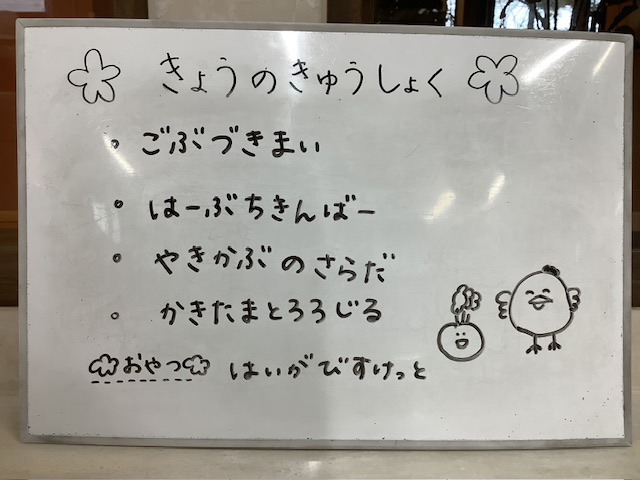 きょうのきゅうしょく
・ごぶづきまい
・はーぶちきんばー
・やきかぶのさらだ
・かきたまとろろじる
おやつ はいがびすけっと